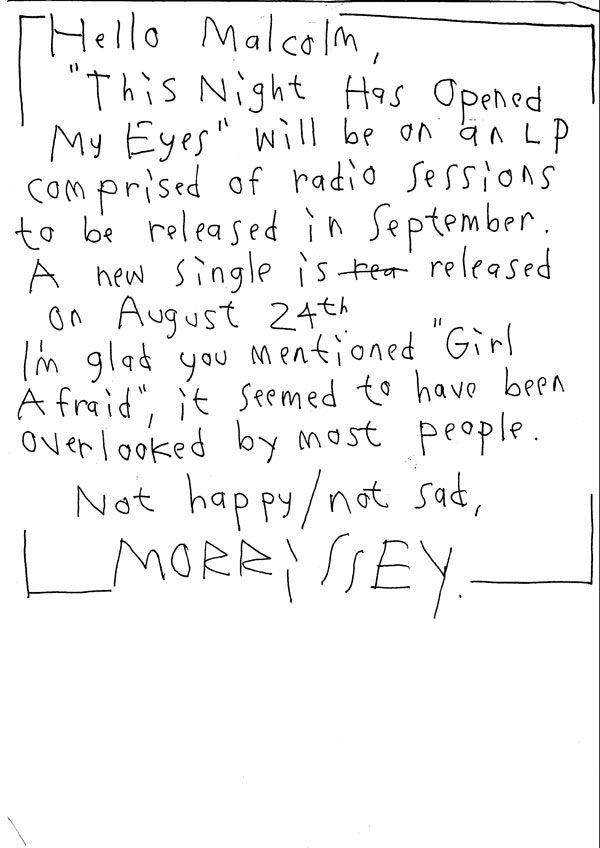 Hello Malcolm,
"This Night Has Opened
My Eyes" will be on an LP
comprised of radio sessions
to be released in September.
A new single is rea released
on August 24th
I'm glad you mentioned "Girl
Afraid", it seemed to have been
overlooked by most people.
Not happy/not sad,
MORRiSSEY.